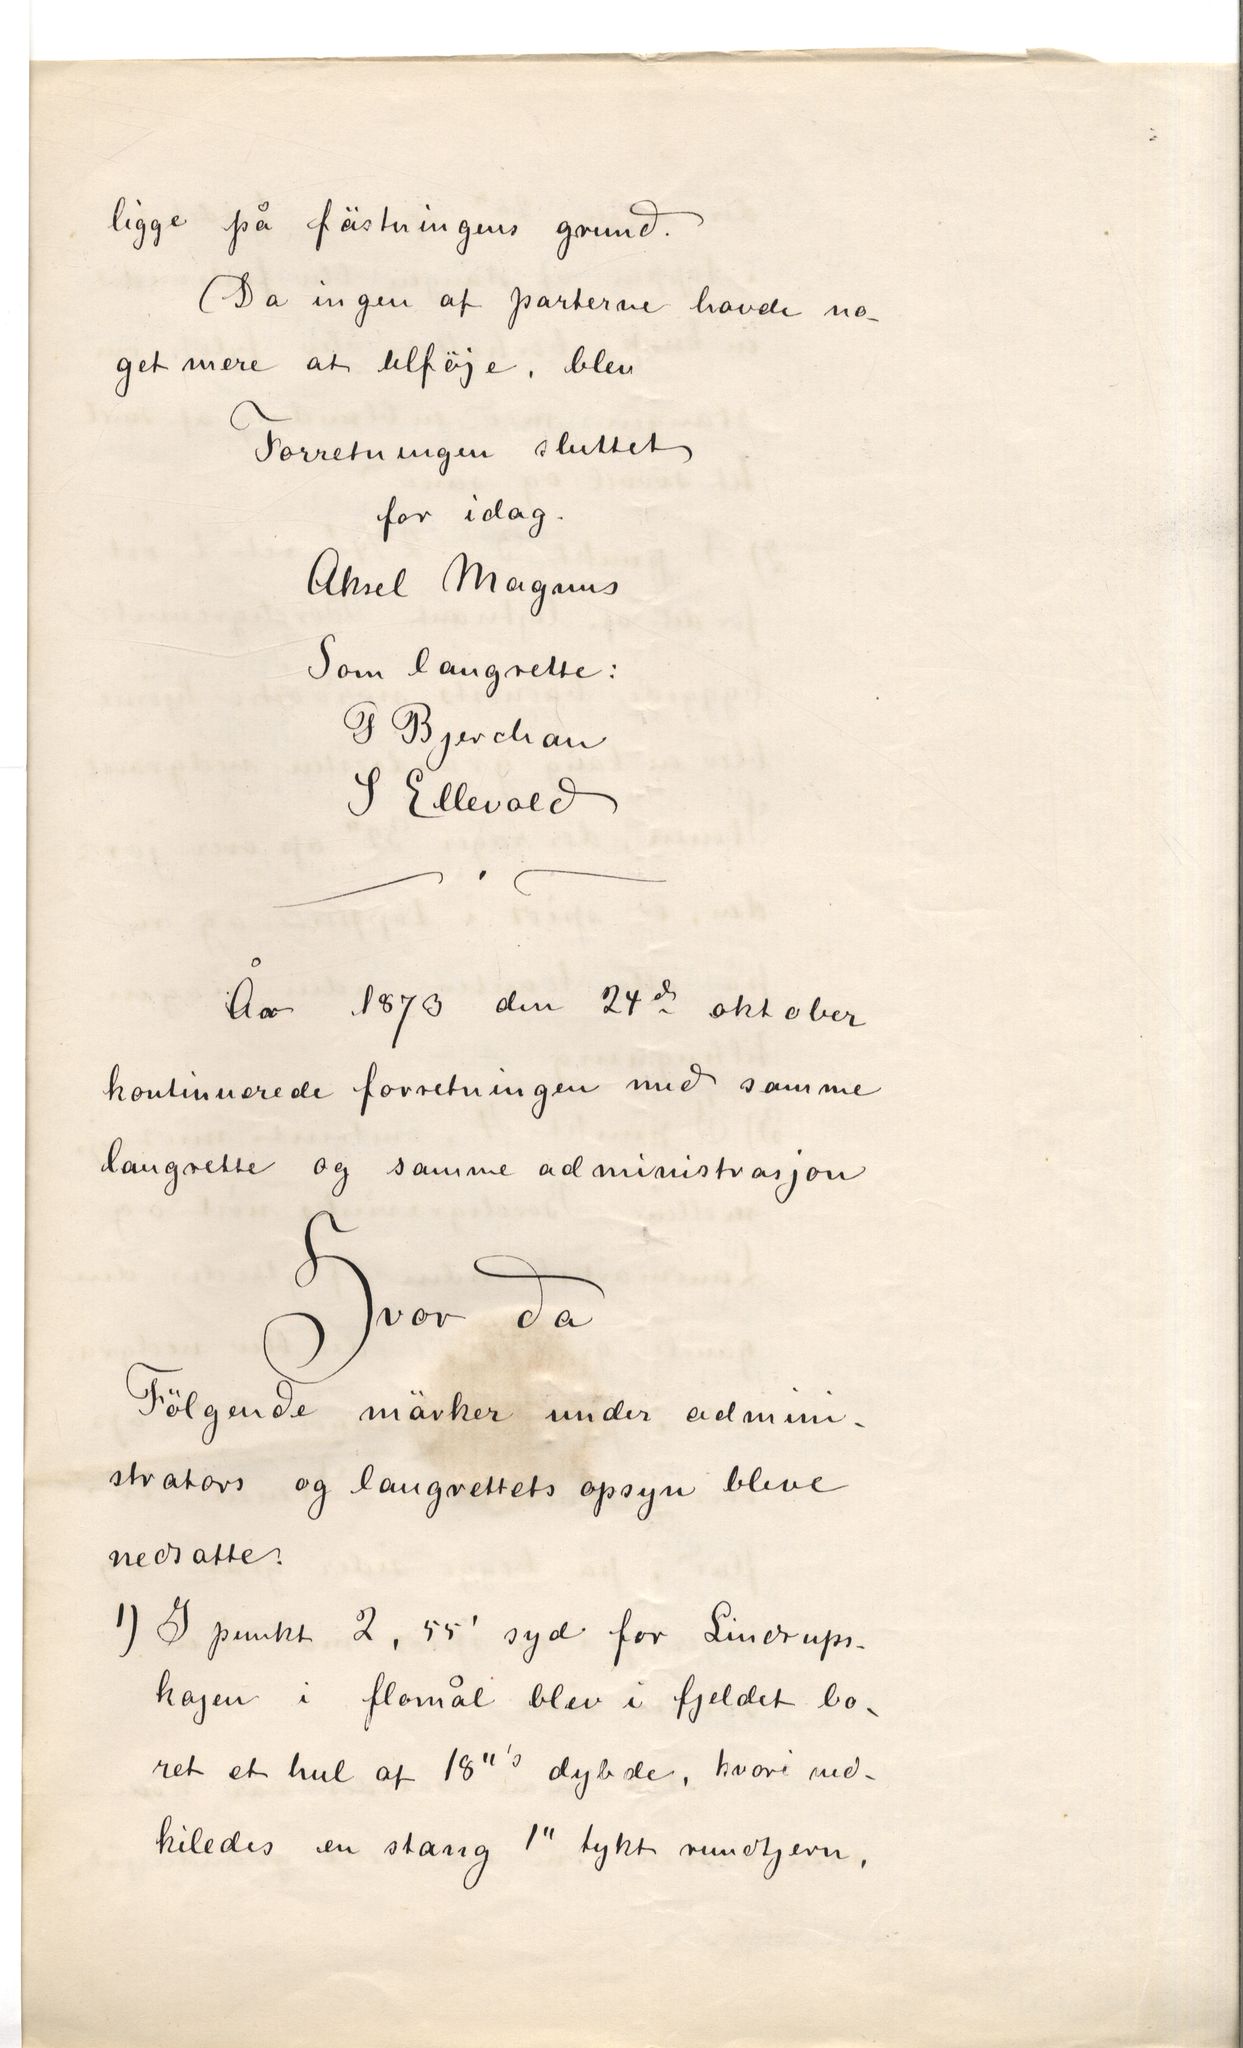 ligge på fästningens grund.
Da ingen af parterne havde no-
get mere at tilföje, blev
Forretningen sluttet
for idag.
Aksel Magnus
Som laugrette:
P Bjerchan
S Ellevold
År 1873 den 24de oktober
kontinuerede forretningen med samme
laugrette og samme administrasjon
Hvor da
Fölgende märker under admini-
strators og laugrettets opsyn bleve
nedsatte:
1) I punkt 2, 55' syd for Lindrups-
kajen i flomål blev i fjeldet bo-
ret et hul af 18"'s dybde, hvori ned-
kiledes en stang 1" tykt rundtjern,